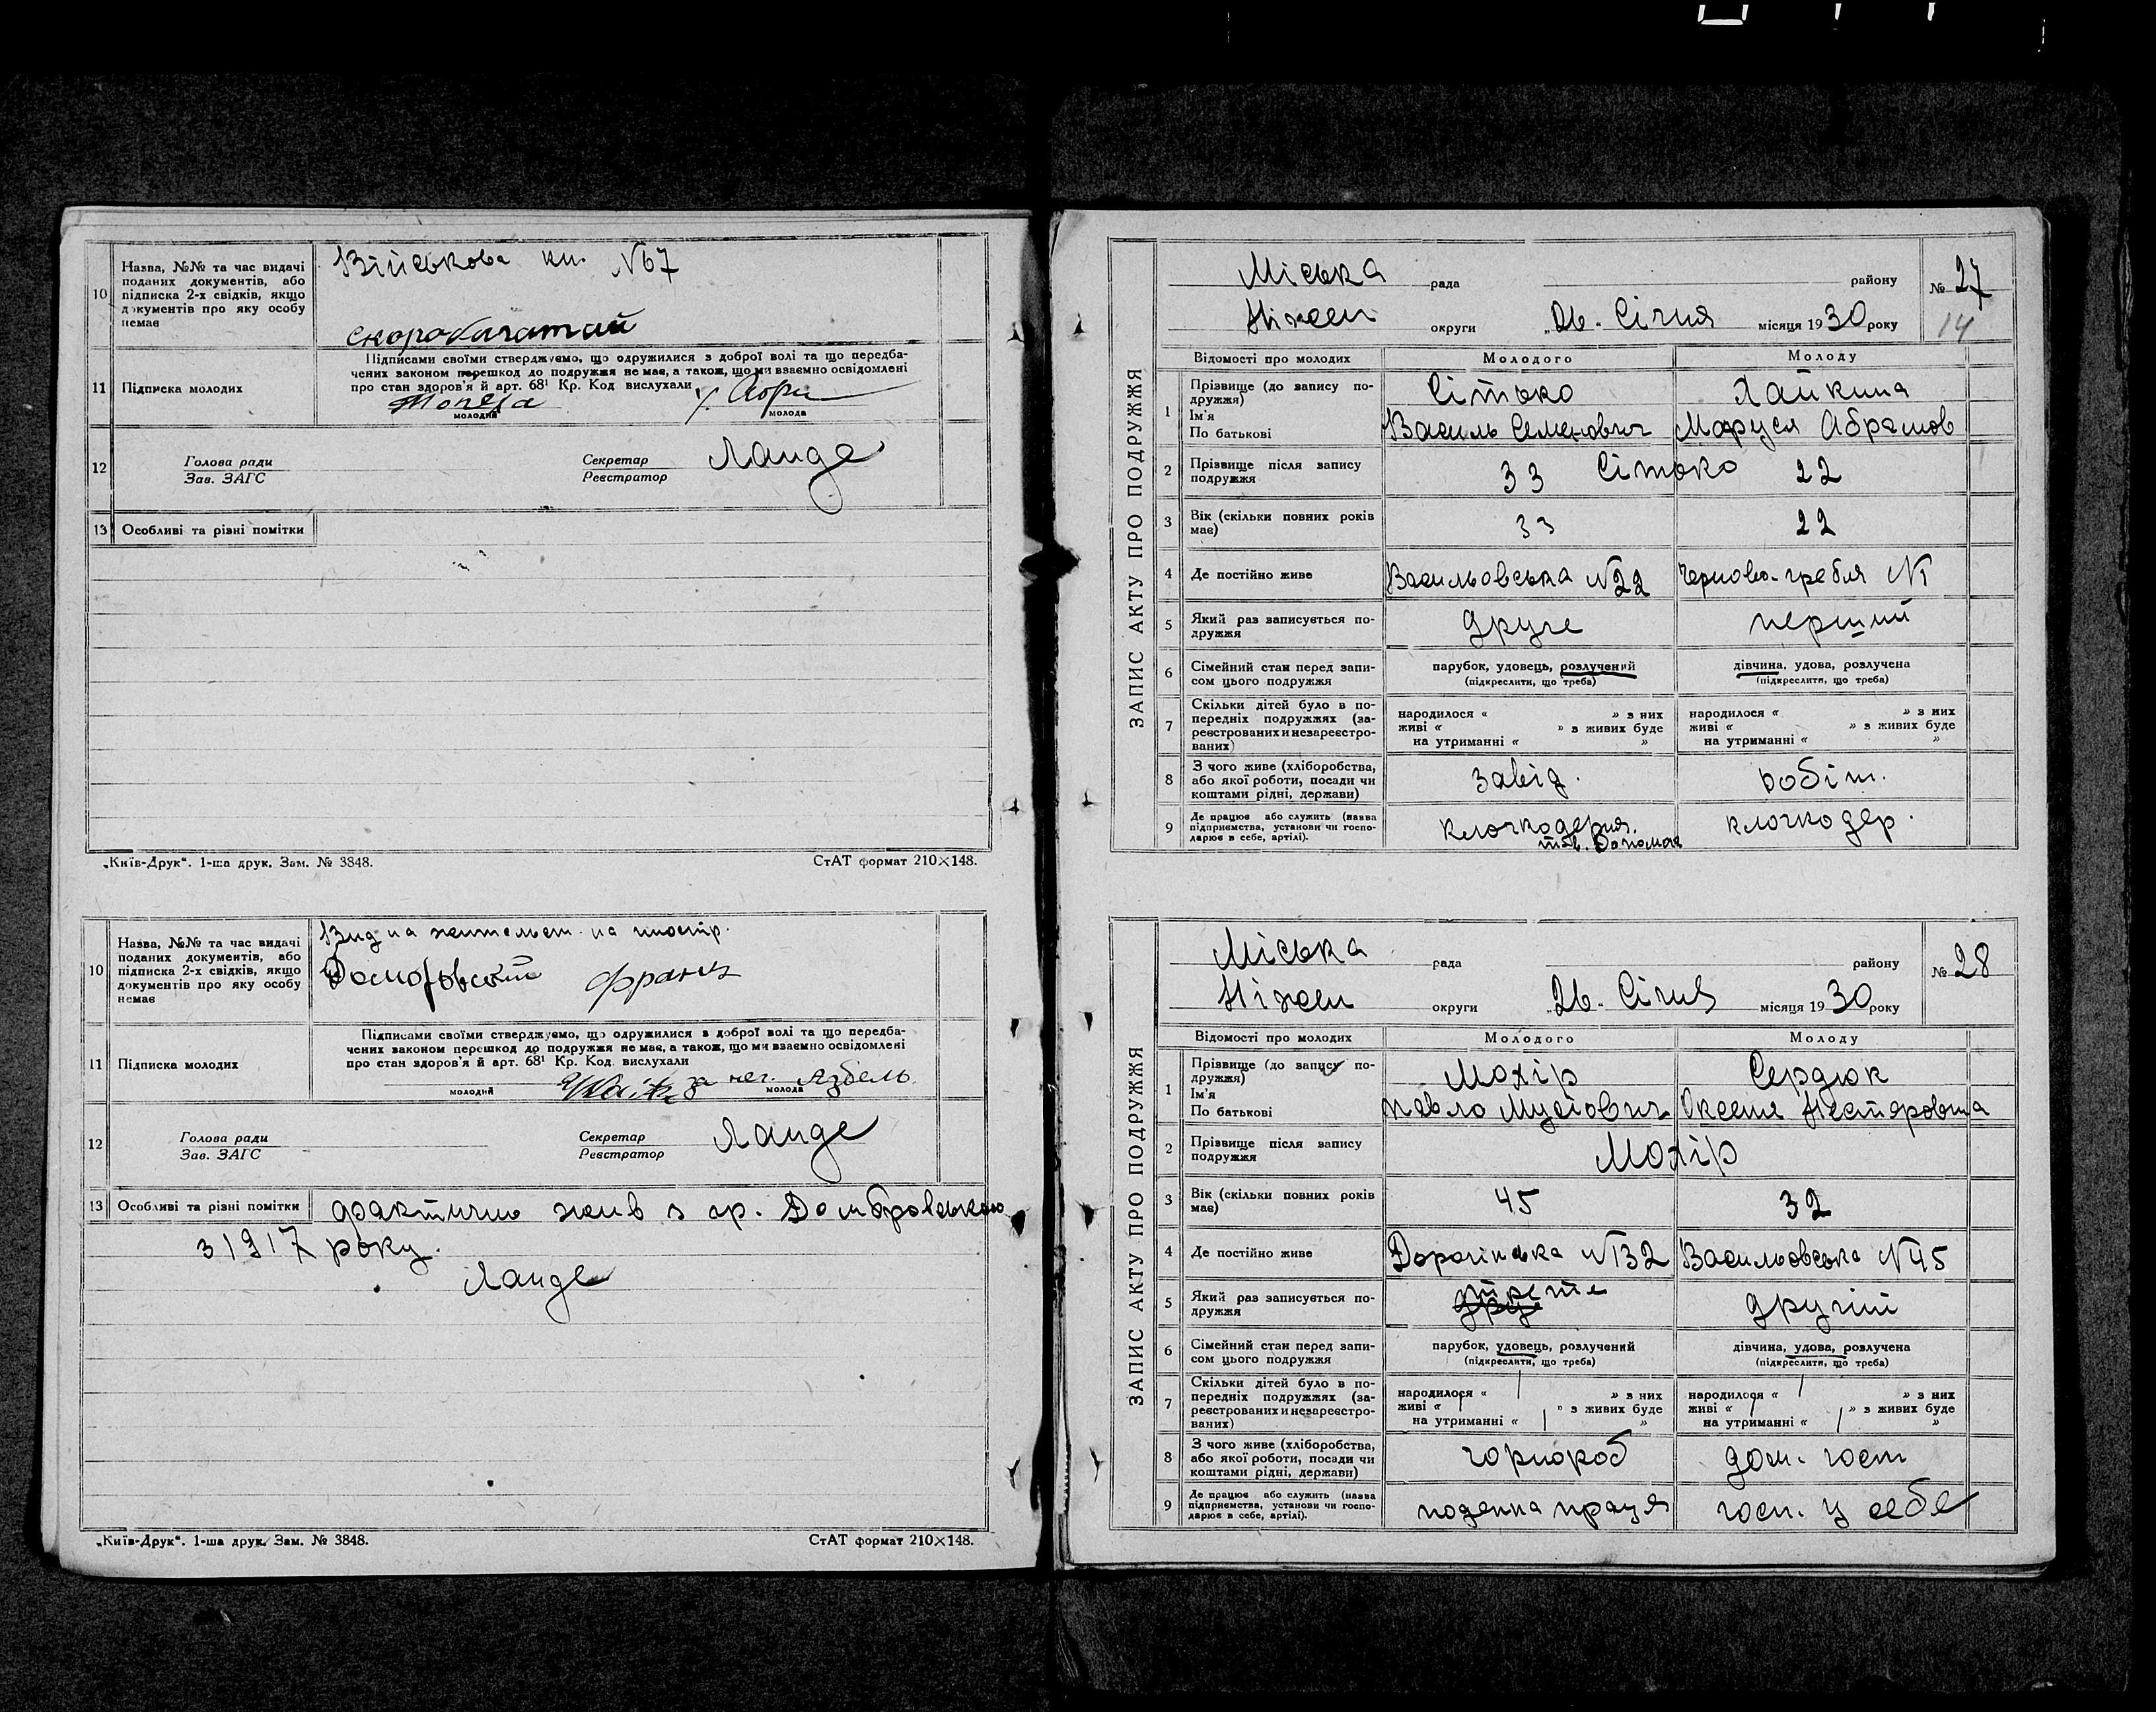 10 Назва, №№ та час видачі поданих документів, або підписка 2-х свідків, якщо документів про яку особу немає
Військова кн. №67
скоробагатий
11 Підписка молодих
Підписами своїми стверджуємо, що одружилися з доброї волі та що передба-
чених законом перешкод до подружжя не має, а також, що ми взаємно освідомлені
про стан здоров'я й арт. 68¹ Кр. Код вислухали
молодий
молода
12 Голова ради
Зав. ЗАГС
Секретар
Реєстратор
Ланде
13 Особливі та різні помітки
„Київ-Друк“. 1-ша друк. Зам. № 3848.
СтАТ формат 210×148.
10 Назва, №№ та час видачі поданих документів, або підписка 2-х свідків, якщо документів про яку особу немає
Вид на жительст. на иностр.
Франц
11 Підписка молодих
Підписами своїми стверджуємо, що одружилися в доброї волі та що передба-
чених законом перешкод до подружжя не має, а також, що ми взаємно освідомлені
про стан здоров'я й арт. 68¹ Кр. Код. вислухали
за нег. Азбель
молодий
молода
12 Голова ради
Зав. ЗАГС
Секретар
Реєстратор
Ланде
13 Особливі та різні помітки
фактично жив з гр. Домбровською
з 1917 року.
Ланде
„Київ-Друк“. 1-ша друк. Зам. № 3848.
СтАТ формат 210×148.
ЗАПИС АКТУ ПРО ПОДРУЖЖЯ
Міська рада району № 27
Ніжен округи „26. Січня місяця 1930 року 14
Відомості про молодих Молодого Молоду
1 Прізвище (до запису по-
дружжя) Сітько Хайкина
Ім'я
По батькові Василь Семенович Маруся Абрамов
2 Прізвище після запису
подружжя 33 Сітько 22
3 Вік (скільки повних років
має) 33 22
4 Де постійно живе Васильовська №22 Черново-гребля №1
5 Який раз записується по-
дружжя друге перший
6 Сімейний стан перед запи-
сом цього подружжя
парубок, удовець, розлучений
(підкреслити, що треба)
дівчина, удова, розлучена
(підкреслити, що треба)
7 Скільки дітей було в по-
передніх подружжях (за-
реєстрованих и незареєстро-
ваних)
народилося « » з них
живі « » з живих буде
на утриманні « »
народилося « » з них
живі « » з живих буде
на утриманні « »
8 З чого живе (хліборобства,
або якої роботи, посади чи
коштами рідні, держави)
завід. робіт.
9 Де працює або служить (назва
підприємства, установи чи госпо-
дарює в себе, артілі).
клочкодерня. клочкодер.
тов. Допомога
ЗАПИС АКТУ ПРО ПОДРУЖЖЯ
Міська рада району № 28
Ніжен округи „26. Січня місяця 1930 року
Відомості про молодих Молодого Молоду
1 Прізвище (до запису по-
дружжя) Мохір Сердюк
Ім'я
По батькові Павло Мусіович Оксеня Нестеровна
2 Прізвище після запису
подружжя Мохір
3 Вік (скільки повних років
має) 45 32
4 Де постійно живе Дорогінська №132 Васильовська №45
5 Який раз записується по-
дружжя друге третє другий
6 Сімейний стан перед запи-
сом цього подружжя
парубок, удовець, розлучений
(підкреслити, що треба)
дівчина, удова, розлучена
(підкреслити, що треба)
7 Скільки дітей було в по-
передніх подружжях (за-
реєстрованих и незареєстро-
ваних)
народилося « 1 » з них
живі « 1 » з живих буде
на утриманні « 1 »
народилося « 1 » з них
живі « 1 » з живих буде
на утриманні « 1 »
8 З чого живе (хліборобства,
або якої роботи, посади чи
коштами рідні, держави)
чорнороб дом. госп
9 Де працює або служить (назва
підприємства, установи чи госпо-
дарює в себе, артілі).
поденна праця госп. у себе